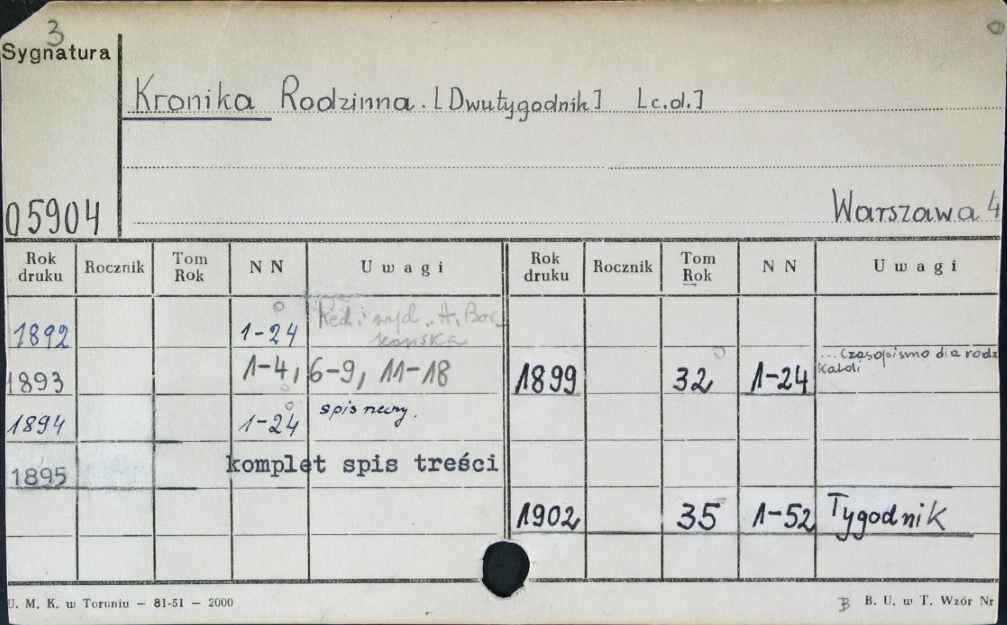 3
Sygnatura
Kronika Rodzinna. [Dwutygodnik] [c.d.]
05904
Warszawa 4
Rok druku Rocznik Tom Rok NN Uwagi Rok druku Rocznik Tom Rok NN Uwagi
1892 1-24 Red. i wyd. A. Bor
kowska
1893 1-4, 6-9, 11-18
1899 32 1-24 ...Czasopismo dla rodz
1894 1-24
1895 komplet spis treści
1902 35 1-52 Tygodnik
U. M. K. w Toruniu — 81-51 — 2000
B B. U. w T. Wzór Nr